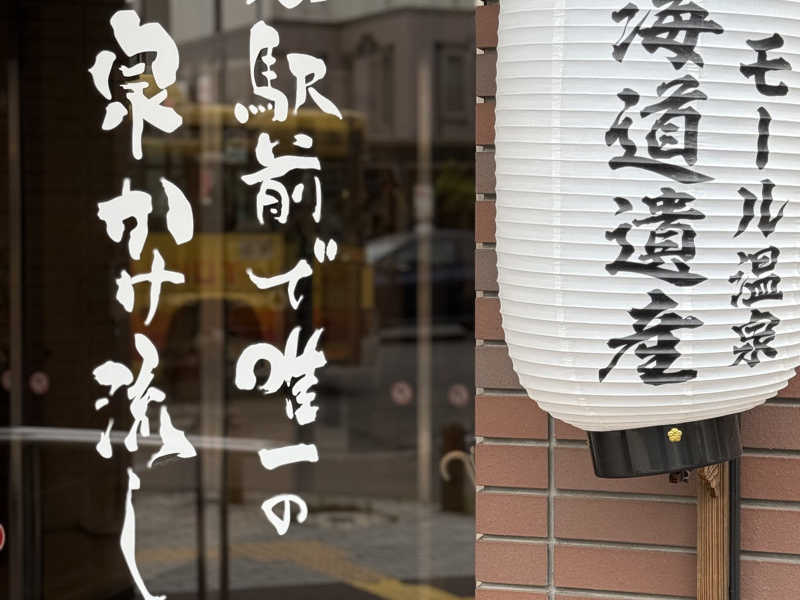 駅前で唯一の
泉かけ流し
モール温泉
海道遺産